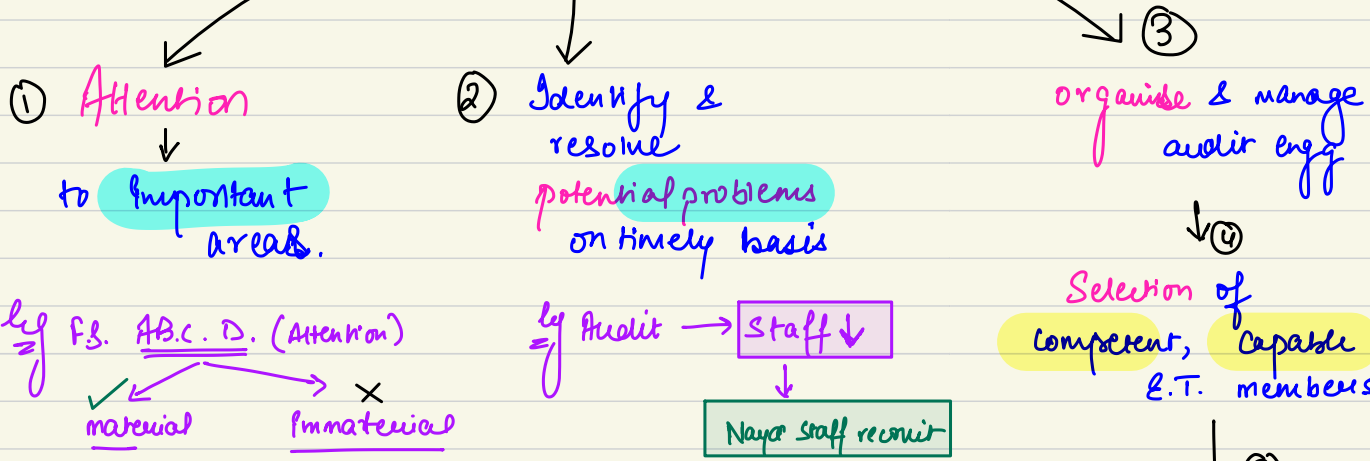 ① Attention
↓
to Important
areas.
eg F.S. A.B.C. D. (Attention)
✓ material
× Immaterial
② Identify &
resolve
potential problems
on timely basis
eg Audit → Staff ↓
Naya staff recruit
③
organise & manage
audit engg
↓ ④
Selection of
Competent, Capable
E.T. members